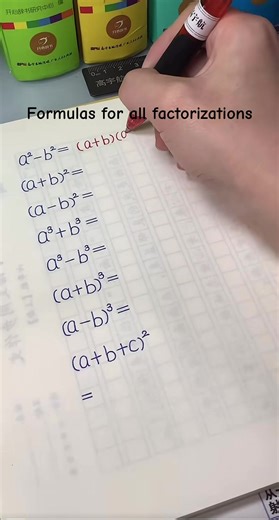 Formulas for all factorizations
a²-b²= (a+b)(a
(a+b)²=
(a-b)²=
a³+b³=
a³-b³=
(a+b)³=
(a-b)³=
(a+b+c)²
=